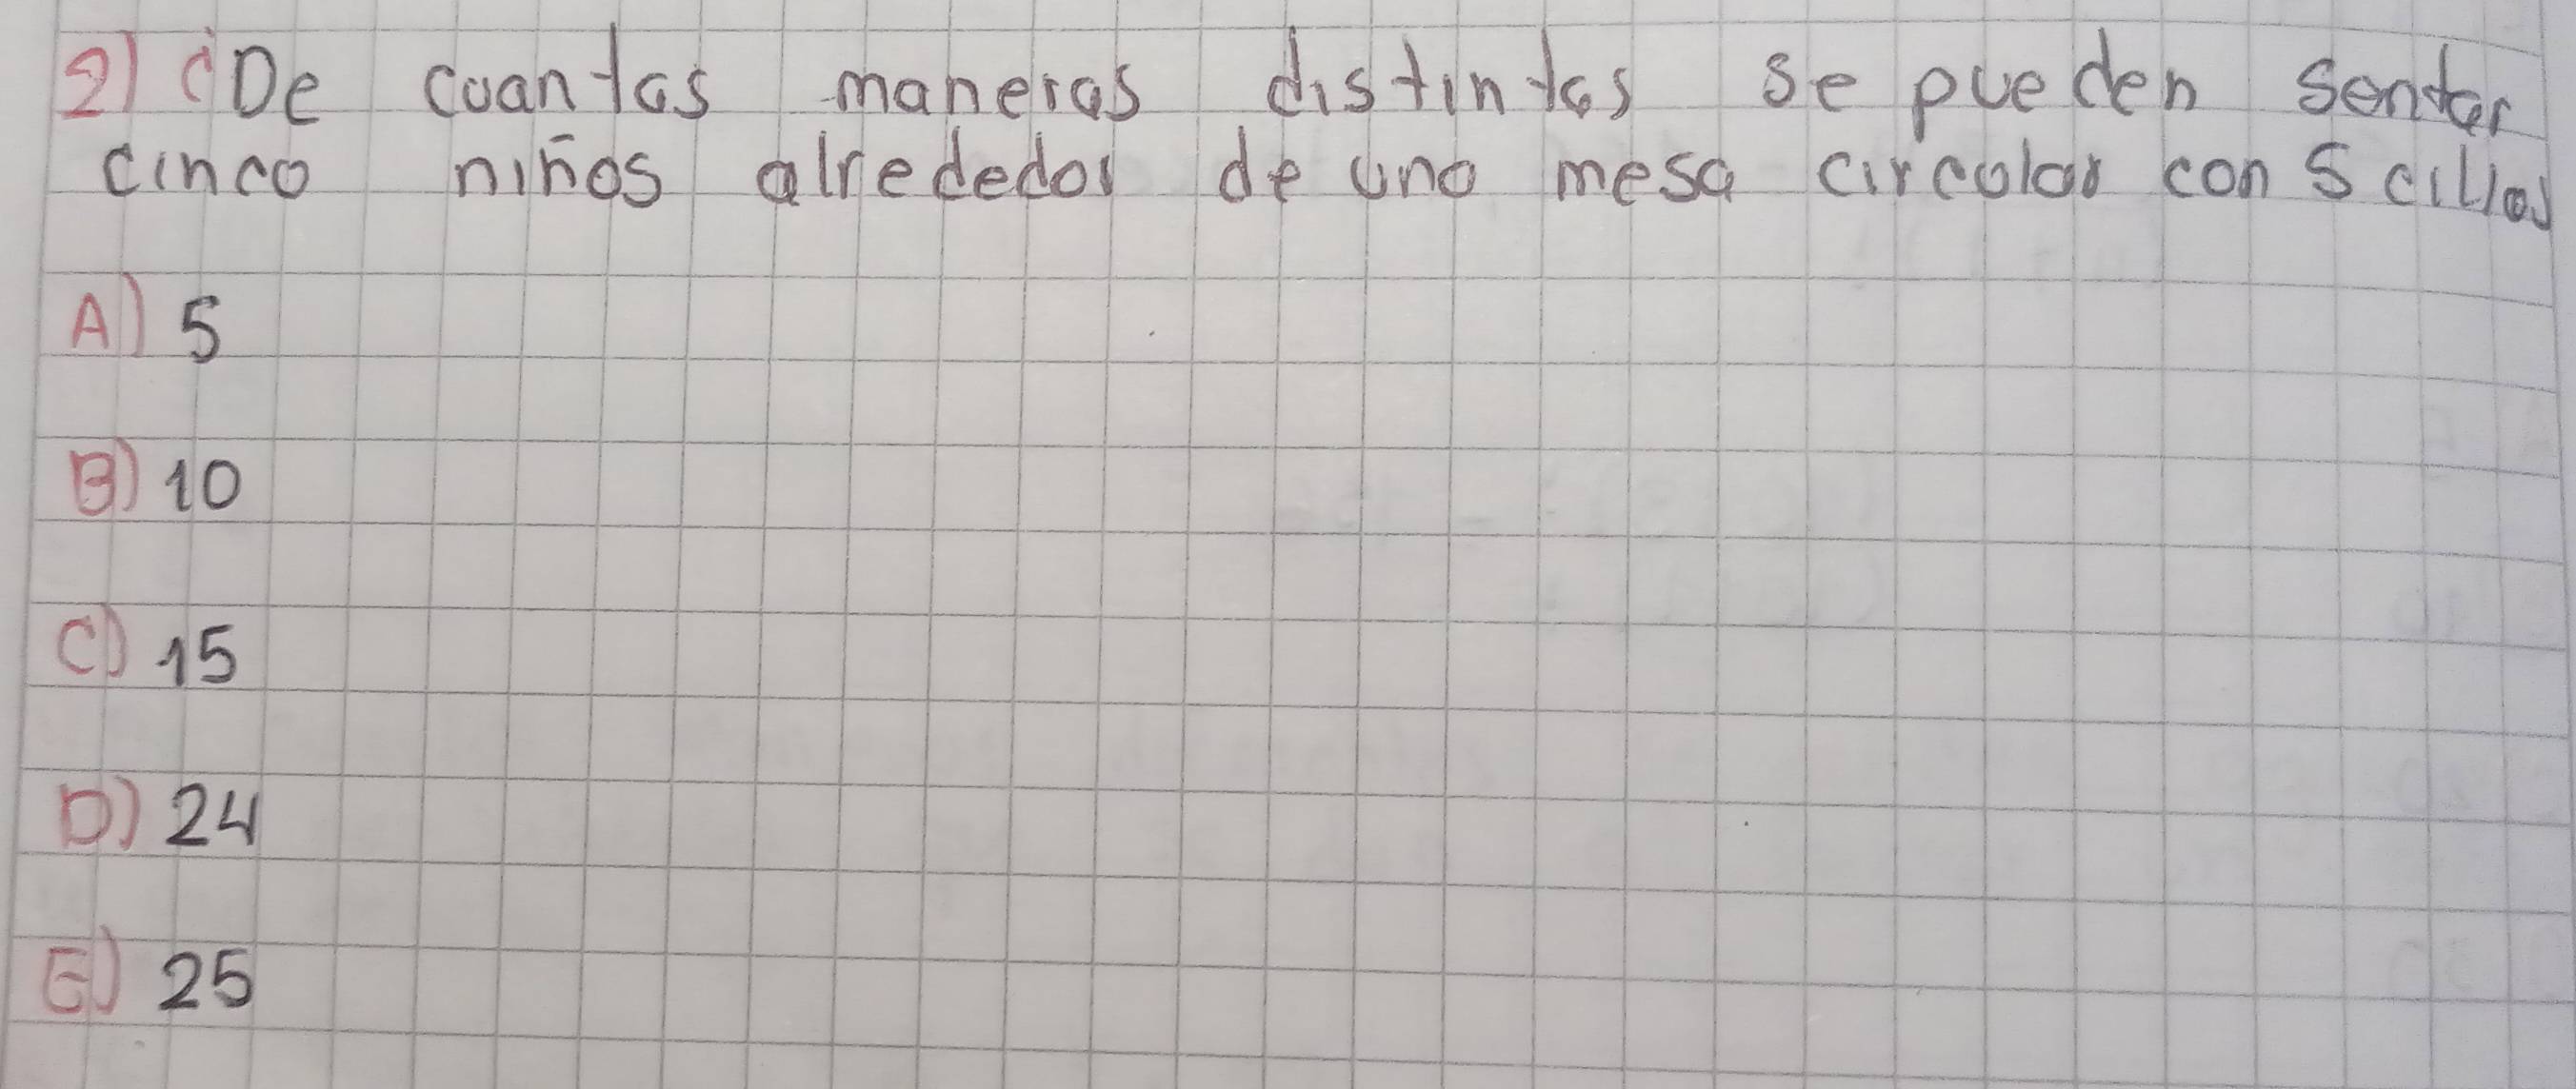 2) ¿De cuantas maneras distintas se pueden sentar
cinco niños alrededor de una mesa circular con 5 cillas
A) 5
B) 10
C) 15
D) 24
E) 25